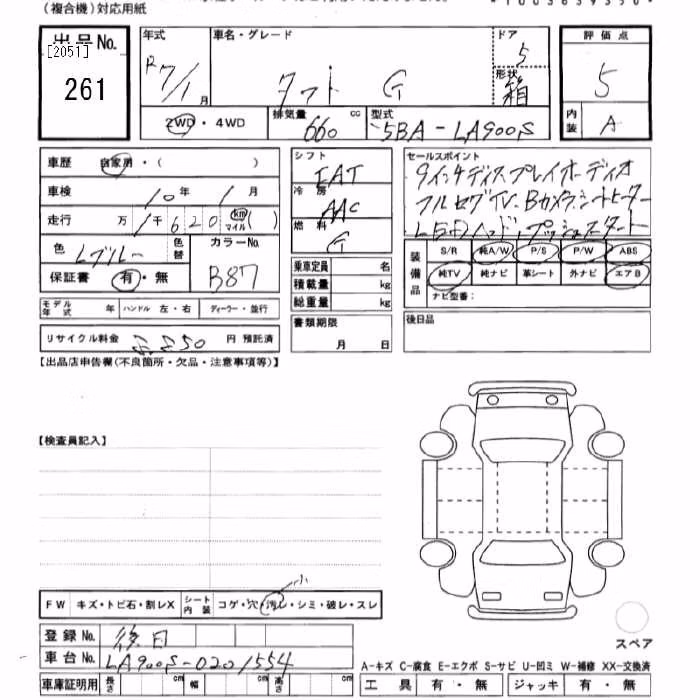 （複合機）対応用紙
出品No.
[2051]
261
年式
R7/1月
車名・グレード
タフト G
ドア
5
形状
箱
2WD・4WD
排気量
660 cc
型式
5BA-LA900S
評価点
5
内装
A
車歴 自家用・（ ）
車検 10年 1月
走行 万 1千620 km マイル
色 Lブルー
色替
カラーNo.
B87
保証書 有・無
モデル年式 年 ハンドル 左・右 ディーラー・並行
リサイクル料金 円 預託済
シフト
IAT
冷房
AAC
燃料
G
乗車定員 名
積載量 kg
総重量 kg
書類期限
月 日
セールスポイント
9インチディスプレイオーディオ
フルセグTV、Bカメラ、シートヒーター
LEDヘッド、プッシュスタート
装備品
S/R 純A/W P/S P/W ABS
純TV 純ナビ 革シート 外ナビ エアB
ナビ型番：
後日品
【出品店申告欄（不良箇所・欠品・注意事項等）】
【検査員記入】
小
FW キズ・トビ石・割レX シート内装 コゲ・穴・汚レ・シミ・破レ・スレ
登録No. 後日
車台No. LA900S-0201554
車庫証明用 長さ cm 幅 cm 高さ cm
スペア
A-キズ C-腐食 E-エクボ S-サビ U-凹ミ W-補修 XX-交換済
工具 有・無 ジャッキ 有・無